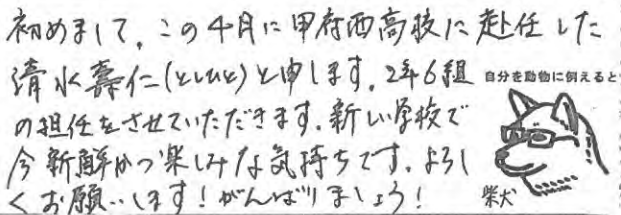 初めまして。この4月に甲府西高校に赴任した
清水壽仁(としひと)と申します。2年6組
の担任をさせていただきます。新しい学校で
今新鮮かつ楽しみな気持ちです。よろし
くお願いします！がんばりましょう！
自分を動物に例えると
柴犬